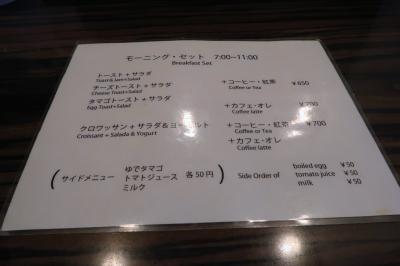 モーニング・セット 7:00~11:00
Breakfast Set
トースト + サラダ
Toast & Jam+Salad
チーズトースト + サラダ ＋コーヒー・紅茶 ¥650
Cheese Toast+Salad Coffee or Tea
タマゴトースト + サラダ ＋カフェ・オレ
Egg Toast+Salad Coffee latte
クロワッサン + サラダ & ヨーグルト ＋コーヒー・紅茶 ¥700
Croissant + Salada & Yogurt Coffee or Tea
＋カフェ・オレ
Coffee latte
(サイドメニュー ゆでタマゴ 各50円) Side Order of boiled egg ¥50
トマトジュース tomato juice ¥50
ミルク milk ¥50